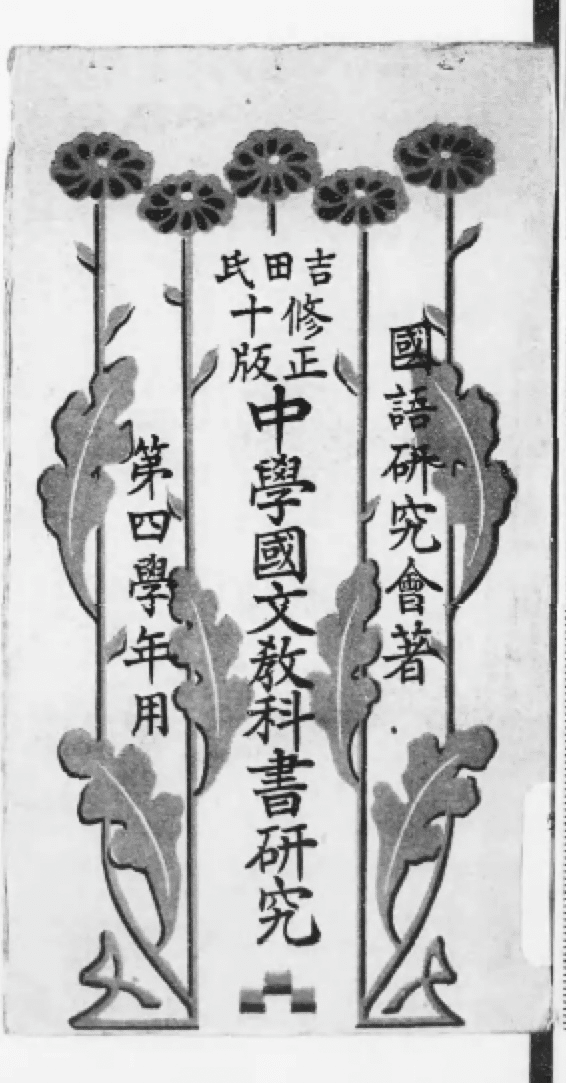 國語研究會著
吉田氏
修正
十版
中學國文教科書研究
第四學年用